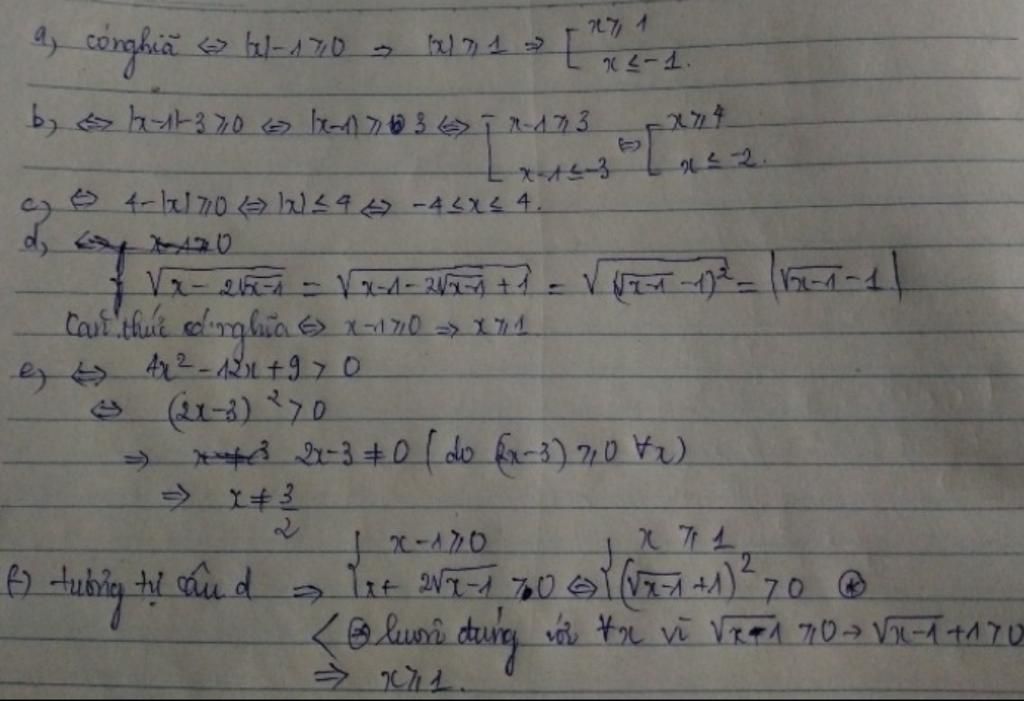 a) có nghĩa ⇔ |x| - 1 ≥ 0 ⇒ |x| ≥ 1 ⇒ [ x ≥ 1
x ≤ -1.
b) ⇔ |x-1| - 3 ≥ 0 ⇔ |x-1| ≥ 3 ⇔ [ x-1 ≥ 3 ⇔ [ x ≥ 4
x-1 ≤ -3 x ≤ -2.
c) ⇔ 4 - |x| ≥ 0 ⇔ |x| ≤ 4 ⇔ -4 ≤ x ≤ 4.
d) ⇔ x-1 ≥ 0
{ √(x - 2√(x-1)) = √(x-1-2√(x-1)+1) = √((√(x-1) -1)²) = |√(x-1) - 1|
Căn thức có nghĩa ⇔ x-1 ≥ 0 ⇒ x ≥ 1
e) ⇔ 4x² - 12x + 9 > 0
⇔ (2x-3)² > 0
⇒ x ≠ 3 2x-3 ≠ 0 (do (2x-3) ≥ 0 ∀x)
⇒ x ≠ 3/2
{ x-1 ≥ 0 { x ≥ 1
f) tương tự câu d ⇒ x + 2√(x-1) ≥ 0 ⇔ (√(x-1) + 1)² > 0 (*)
< (*) luôn đúng với ∀x vì √(x-1) ≥ 0 → √(x-1) + 1 > 0
⇒ x ≥ 1.